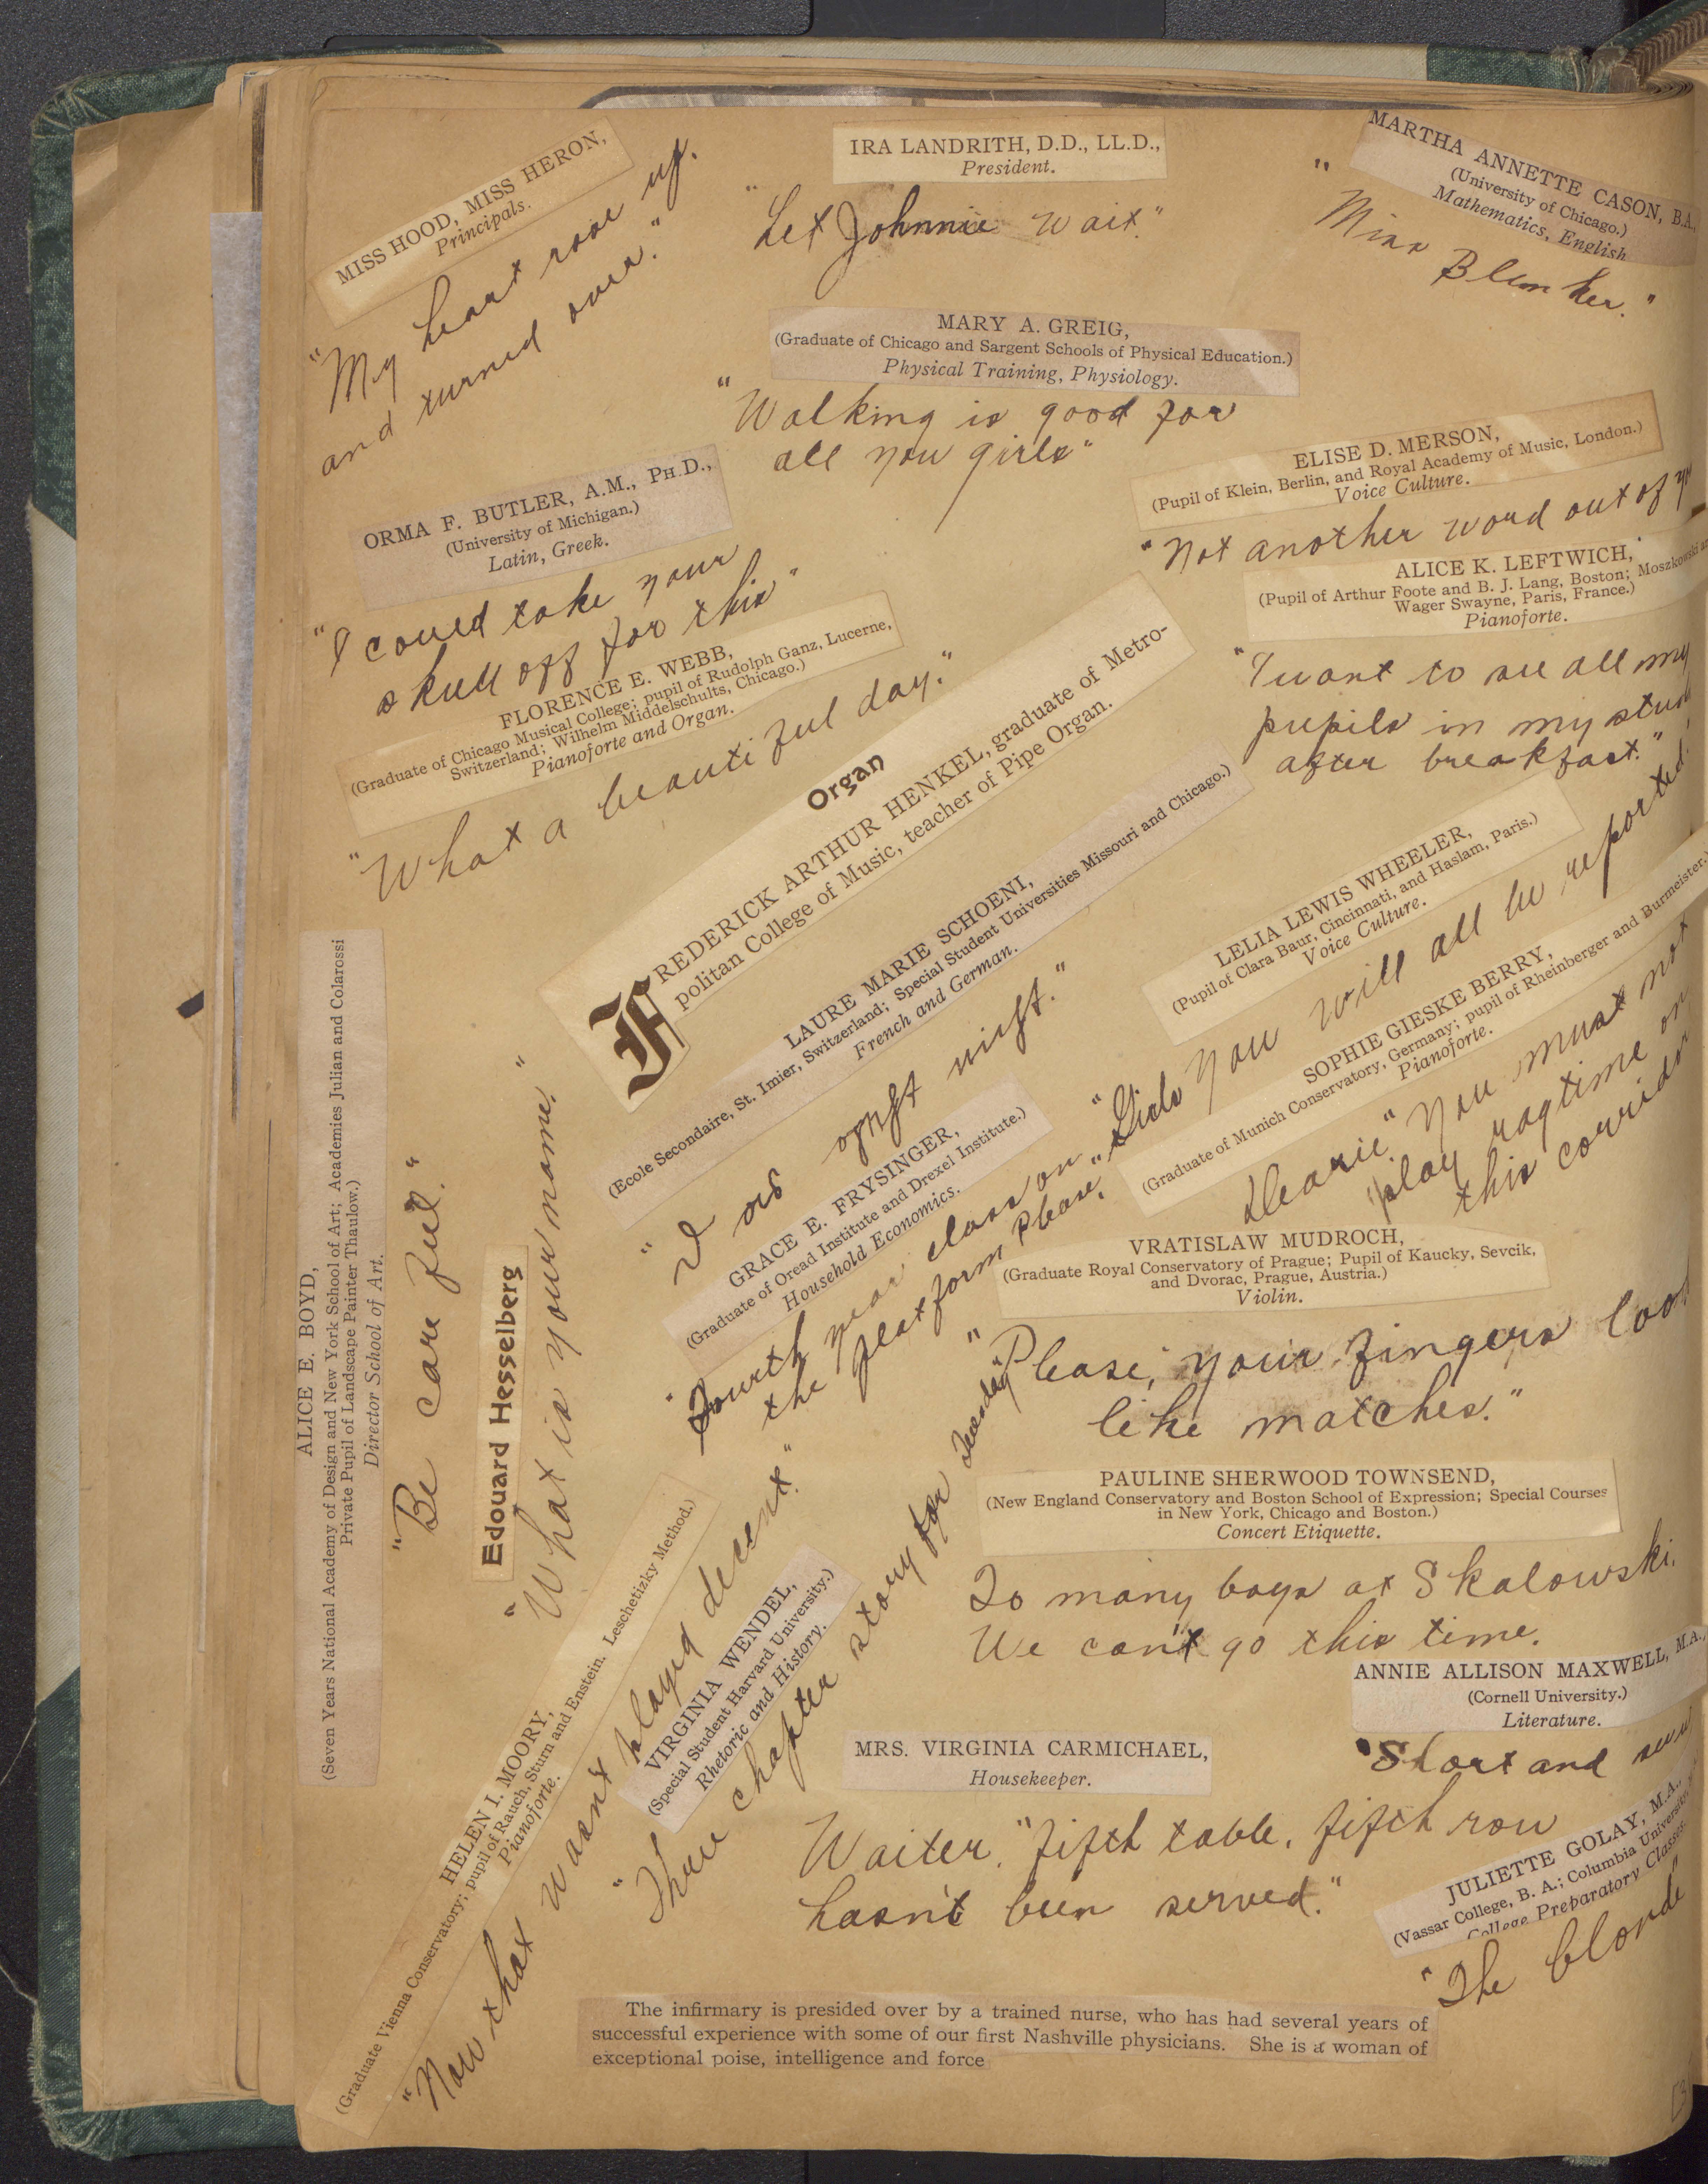 MISS HOOD, MISS HERON,
Principals.
"My heart rose up
and turned over."
IRA LANDRITH, D.D., LL.D.,
President.
"Let Johnnie wait."
MARTHA ANNETTE CASON, B.A.,
(University of Chicago.)
Mathematics, English
"Miss
MARY A. GREIG,
(Graduate of Chicago and Sargent Schools of Physical Education.)
Physical Training, Physiology.
"Walking is good for
all you girls"
ELISE D. MERSON,
(Pupil of Klein, Berlin, and Royal Academy of Music, London.)
Voice Culture.
"Not another word out of
ORMA F. BUTLER, A.M., PH.D.,
(University of Michigan.)
Latin, Greek.
"I could take your
skull off for this"
ALICE K. LEFTWICH,
(Pupil of Arthur Foote and B. J. Lang, Boston; Moszkowski
Wager Swayne, Paris, France.)
Pianoforte.
"I want to see all my
pupils in my
after breakfast."
FLORENCE E. WEBB,
(Graduate of Chicago Musical College; pupil of Rudolph Ganz, Lucerne,
Switzerland; Wilhelm Middelschults, Chicago.)
Pianoforte and Organ.
"What a beautiful day."
Organ
FREDERICK ARTHUR HENKEL, graduate of Metro-
politan College of Music, teacher of Pipe Organ.
LAURE MARIE SCHOENI,
(Ecole Secondaire, St. Imier, Switzerland; Special Student Universities Missouri and Chicago.)
French and German.
LELIA LEWIS WHEELER,
(Pupil of Clara Baur, Cincinnati, and Haslam, Paris.)
Voice Culture.
"Girls you will all be reported."
SOPHIE GIESKE BERRY,
(Graduate of Munich Conservatory, Germany; pupil of Rheinberger and Burmeister.)
Pianoforte.
Dearie." You must not
play ragtime on
this corridor
GRACE E. FRYSINGER,
(Graduate of Oread Institute and Drexel Institute.)
Household Economics.
"Fourth year class on
the platform please."
ALICE E. BOYD,
(Seven Years National Academy of Design and New York School of Art; Academies Julian and Colarossi
Private Pupil of Landscape Painter Thaulow.)
Director School of Art.
"Be care ful."
Edouard Hesselberg
"What is your name."
VRATISLAW MUDROCH,
(Graduate Royal Conservatory of Prague; Pupil of Kaucky, Sevcik,
and Dvorac, Prague, Austria.)
Violin.
"Please, your fingers
like matches."
PAULINE SHERWOOD TOWNSEND,
(New England Conservatory and Boston School of Expression; Special Courses
in New York, Chicago and Boston.)
Concert Etiquette.
So many boys at Skalowski.
We can't go this time.
HELEN I. MOORY,
(Graduate Vienna Conservatory; pupil of Rauch, Sturn and Enstein. Leschetizky Method.)
Pianoforte.
"Now that wasn't played decent."
VIRGINIA WENDEL,
(Special Student Harvard University.)
Rhetoric and History.
"Three chapter story for Tuesday"
ANNIE ALLISON MAXWELL, M.A.,
(Cornell University.)
Literature.
"Short and
MRS. VIRGINIA CARMICHAEL,
Housekeeper.
Waiter, "fifth table, fifth row
hasn't been served."
JULIETTE GOLAY, M.A.,
(Vassar College, B. A.; Columbia
College Preparatory Classes.
"The blonde"
The infirmary is presided over by a trained nurse, who has had several years of
successful experience with some of our first Nashville physicians. She is a woman of
exceptional poise, intelligence and force